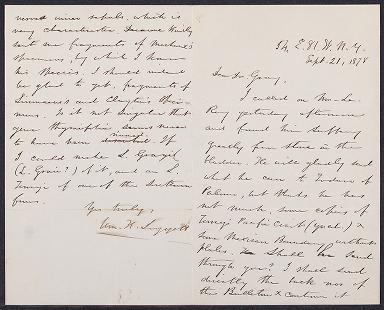 54 E. 81 W. N.Y.
Sept. 21, 1878
Dear Dr. Gray,
I called on Mr. Le
Roy yesterday afternoon
and found him suffering
greatly from stone in the
bladder. He will gladly send
what he can to
but thinks he has
not much, some copies of
Torrey's Pacific Coast &
some Mexican Boundary, without
plates. Shall he send
through you? I shall send
directly the back nos of
the Bulletin & continue it
inner sepals, which is
very characteristic. Decaisne kindly
sent me fragments of Michaux's
specimens, by which I knew
his species. I should indeed
be glad to get fragments of
Linnaeus's and Clayton's speci-
mens. Is it not singular that
your Thyrsiflora seems never
to have been If
I could make L. Grayi
(L. Grain?) of it, and an L.
Torreyi of one of the Southern
forms.
Yrs truly,
Wm. H. Leggett